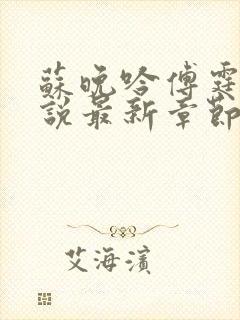 蘇晚吟傅霆
說最新章節
艾海濱